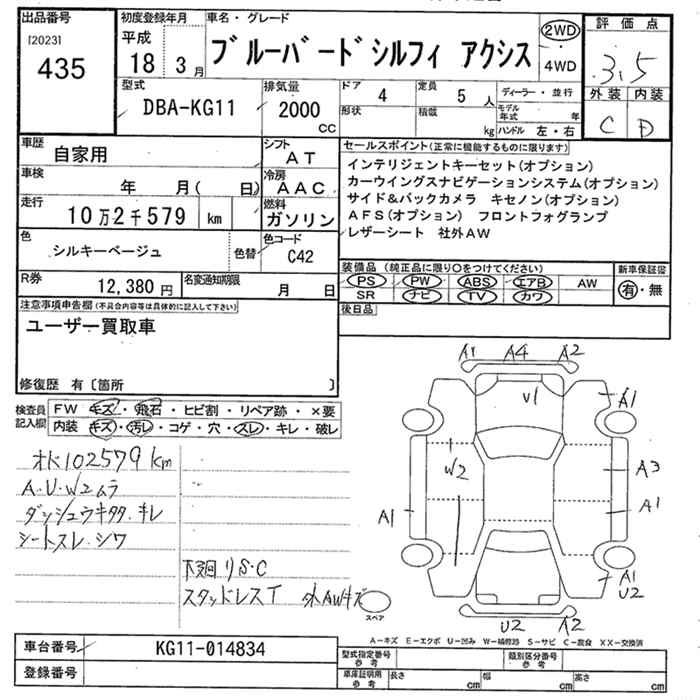 出品番号
[2023]
435
初度登録年月
平成
18 3 月
車名・グレード
ブルーバードシルフィ アクシス
2WD
4WD
評価点
3.5
外装 内装
C D
型式
DBA-KG11
排気量
2000
CC
ドア
4
定員
5 人
ディーラー・並行
形状
積載
kg
モデル年式
年
ハンドル 左・右
車歴
自家用
シフト
AT
車検
年 月( 日)
冷房
AAC
走行
10万2千579 km
燃料
ガソリン
色
シルキーベージュ
色替
色コード
C42
R券
12,380 円
名変通知期限
月 日
セールスポイント(正常に機能するものに限ります)
インテリジェントキーセット(オプション)
カーウイングスナビゲーションシステム(オプション)
サイド&バックカメラ キセノン(オプション)
AFS(オプション) フロントフォグランプ
レザーシート 社外AW
装備品 (純正品に限り○をつけてください)
PS PW ABS エアB AW
SR ナビ TV カワ
新車保証書
有・無
後日品
注意事項申告欄(不具合内容等は具体的に記入して下さい)
ユーザー買取車
修復歴 有〔箇所 〕
検査員記入欄
FW キズ・飛石・ヒビ割・リペア跡・×要
内装 キズ・汚レ・コゲ・穴・スレ・キレ・破レ
オK102579km
A.U.W2ムラ
ダッシュウキタタ.キレ
シートスレ.シワ
下廻りS.C
スタッドレスT 外AWキズ
スペア
A1 A4 A2
U1
A1
W2
A3
A1
A1
A1
U2
U2 A2
A-キズ E-エクボ U-凹み W-補修跡 S-サビ C-腐食 XX-交換済
車台番号
KG11-014834
登録番号
型式指定番号
参考
類別区分番号
参考
車庫証明用
参考
長さ cm
幅 cm
高さ cm